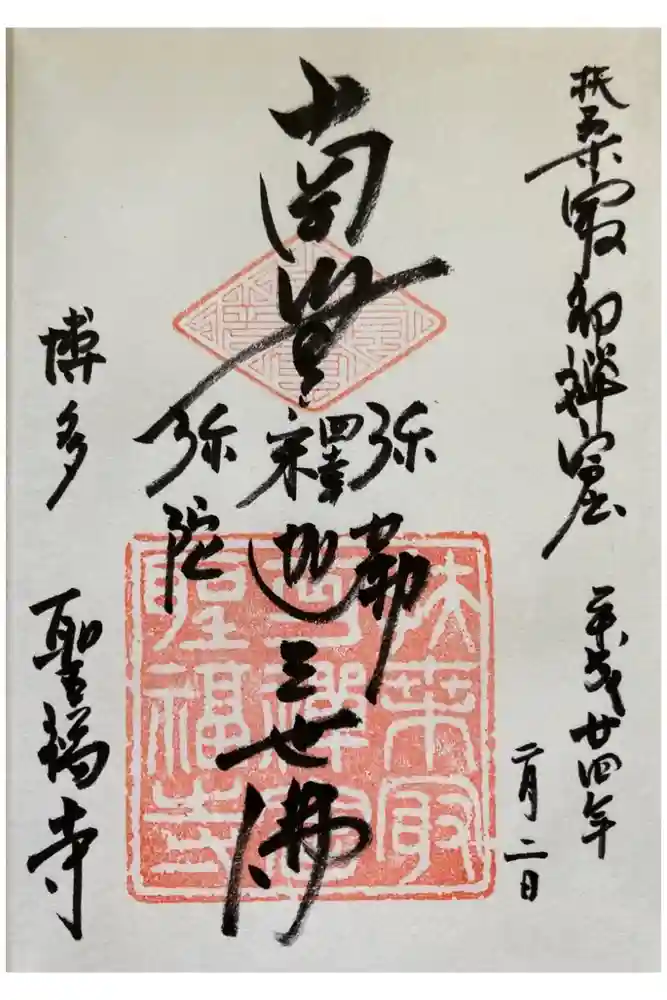 扶桑最初禅窟
平成廿四年
二月二日
南無
弥勒
釋迦
弥陀
三世佛
博多
聖福寺
扶桑最
初禅窟
聖福寺